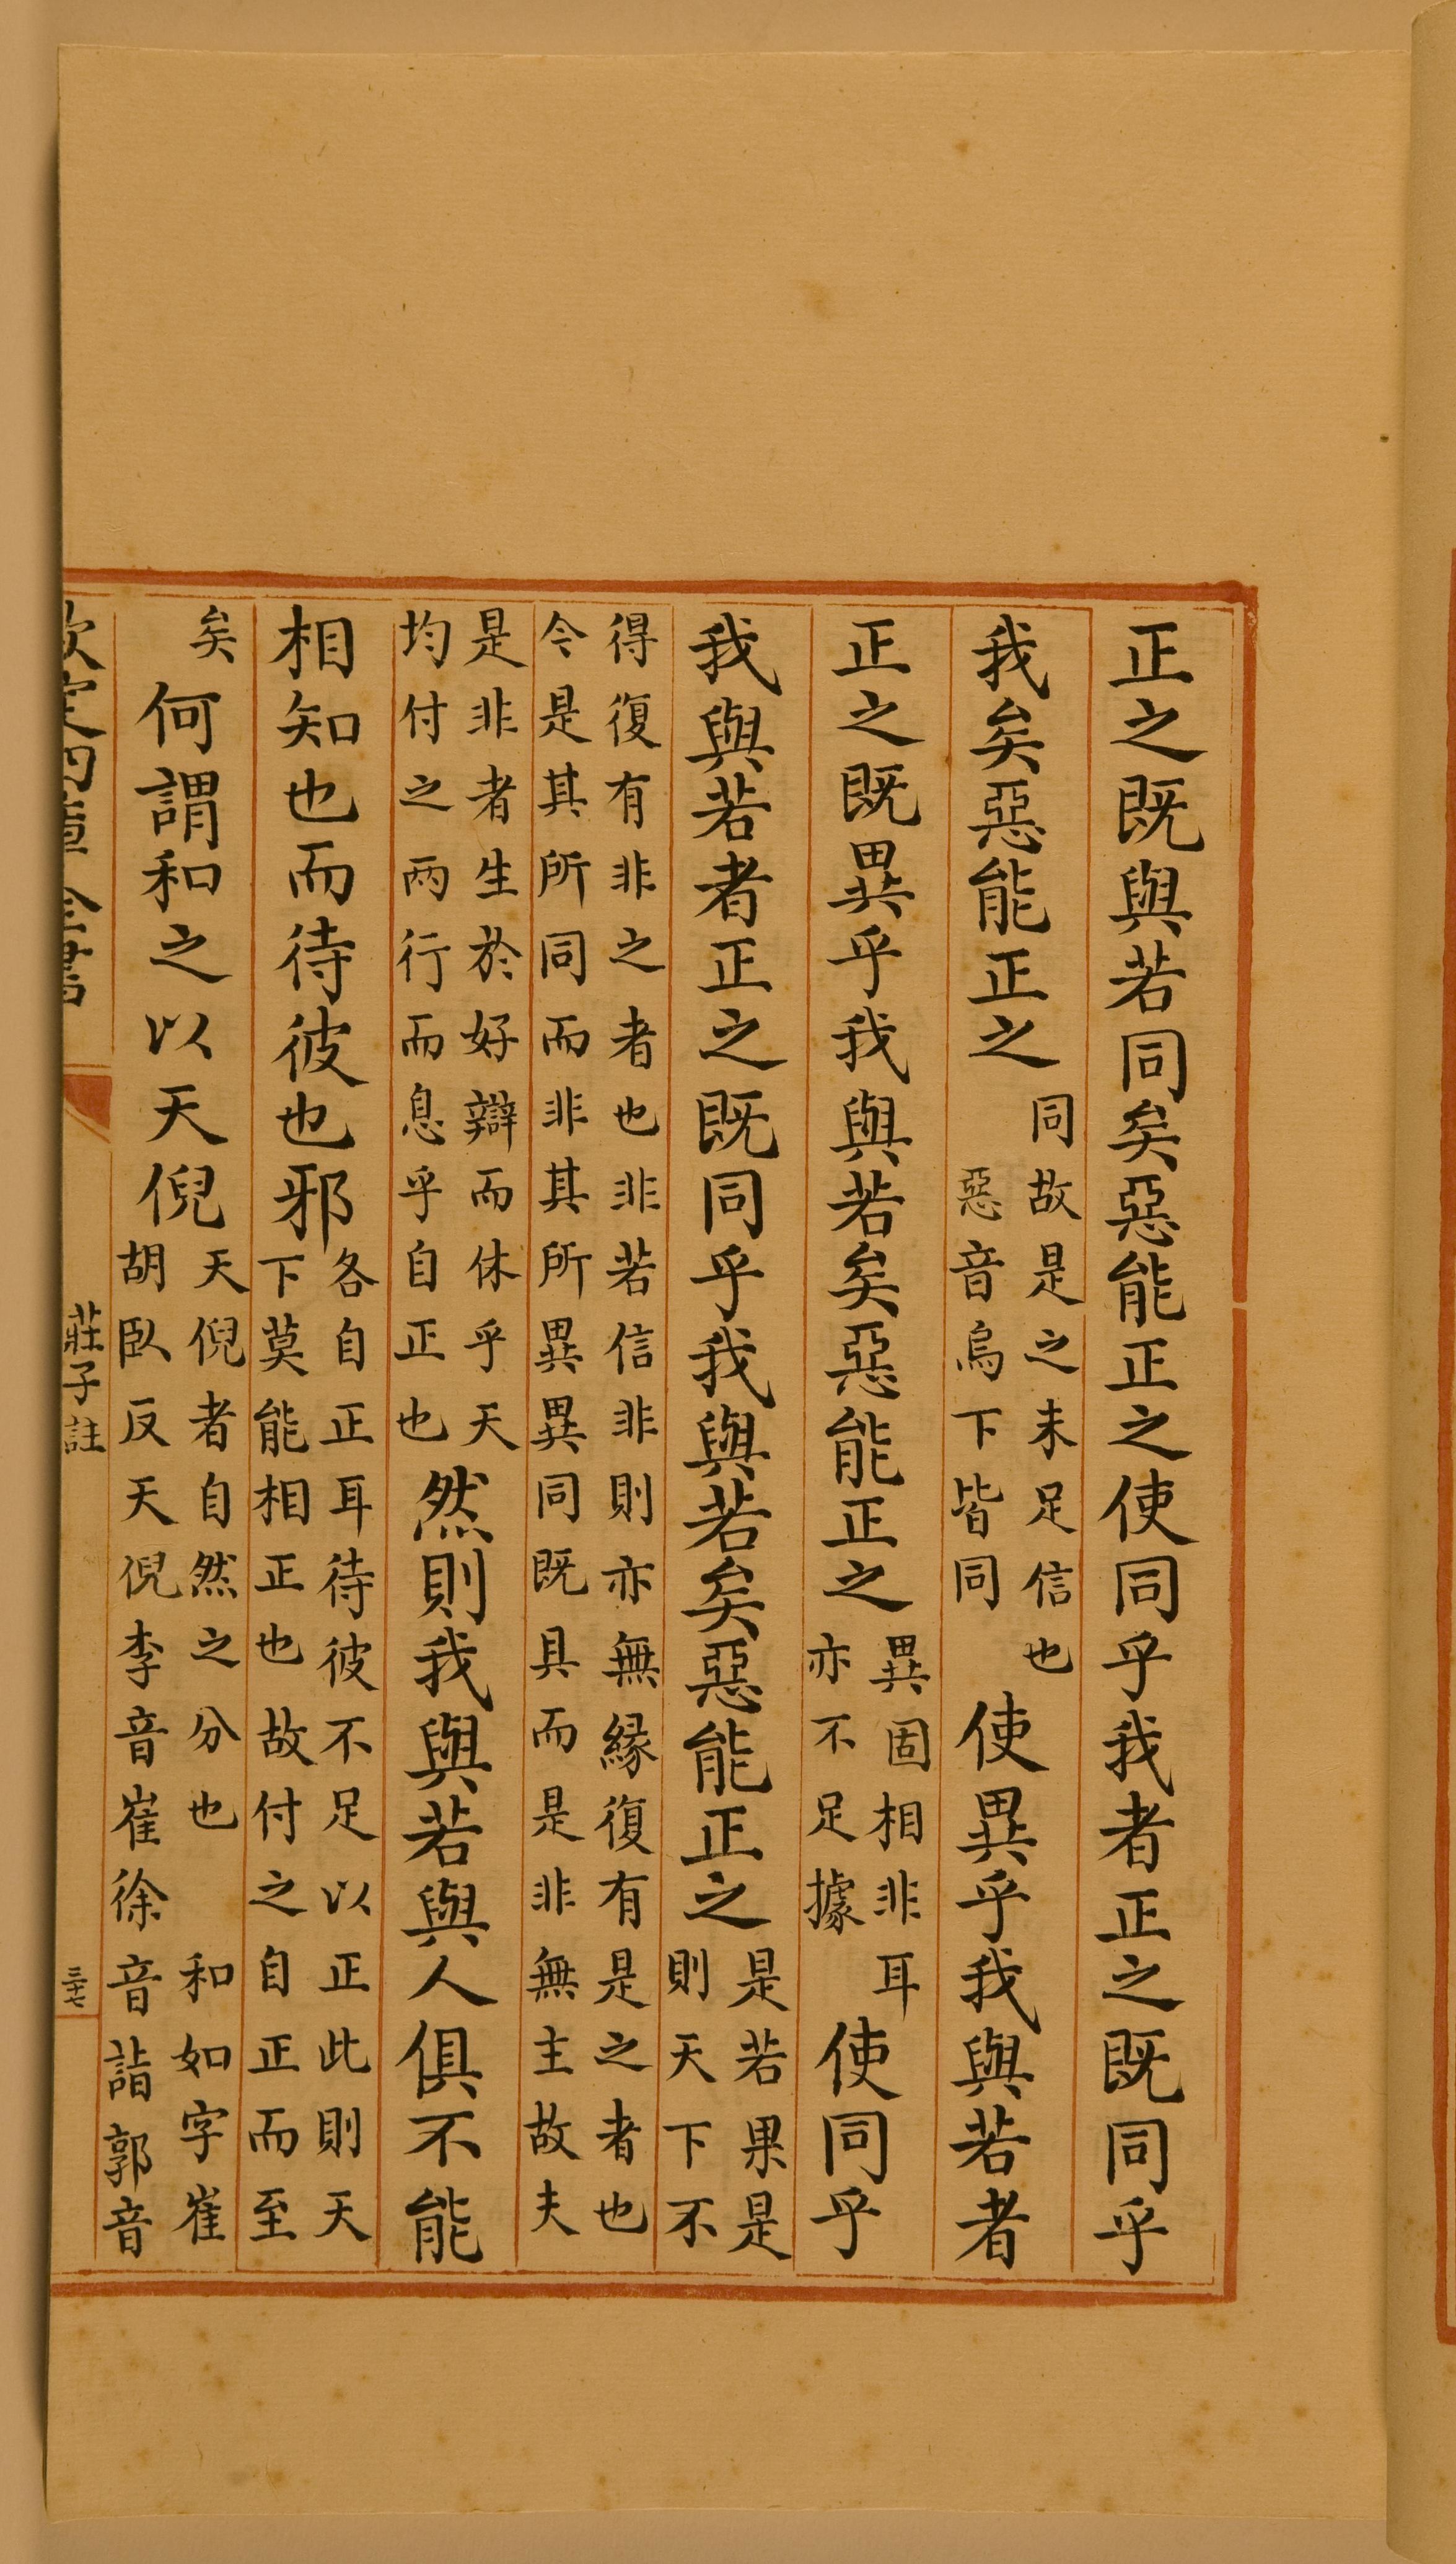 正之既與若同矣惡能正之使同乎我者正之既同乎
我矣惡能正之同故是之未足信也惡音烏下皆同使異乎我與若者
正之既異乎我與若矣惡能正之異固相非耳亦不足據使同乎
我與若者正之既同乎我與若矣惡能正之是若果是則天下不
得復有非之者也非若信非則亦無緣復有是之者也
今是其所同而非其所異異同既具而是非無主故夫
是非者生於好辯而休乎天均付之兩行而息乎自正也然則我與若與人俱不能
相知也而待彼也邪各自正耳待彼不足以正此則天下莫能相正也故付之自正而至
矣何謂和之以天倪天倪者自然之分也 和如字崔胡臥反天倪李音崔徐音詣郭音
欽定四庫全書 莊子註 三十七